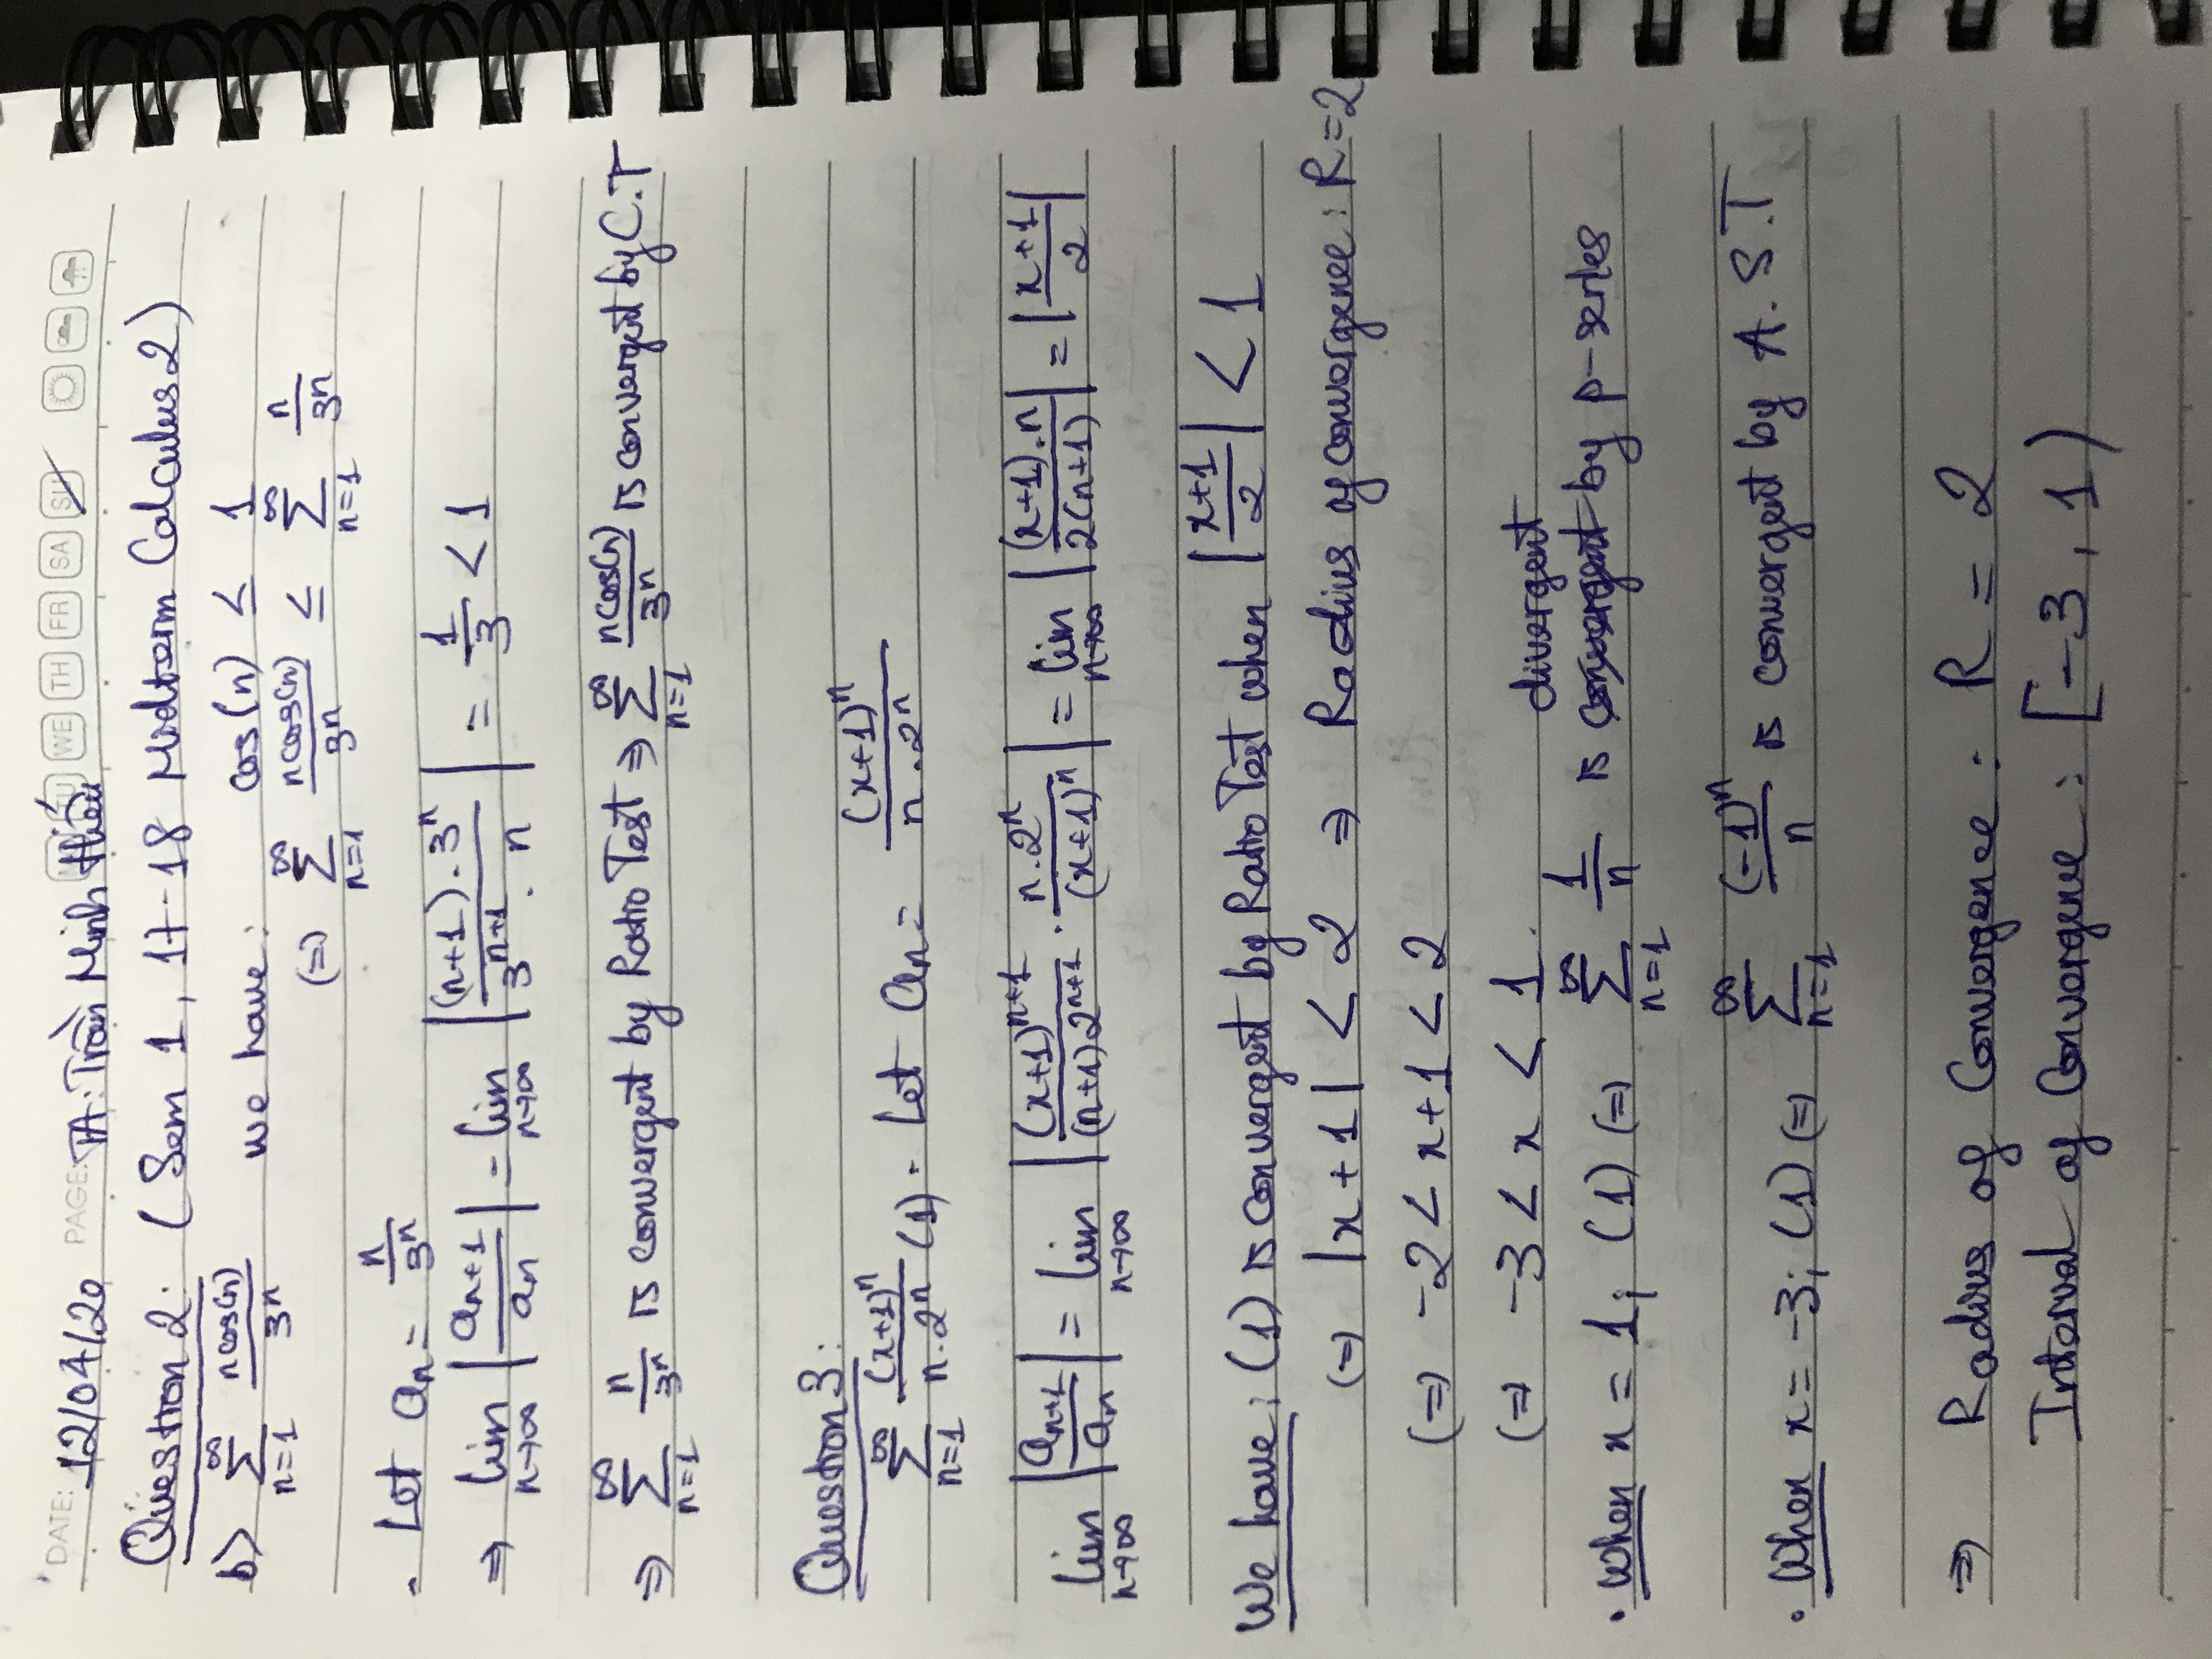 DATE: 12/04/20 PAGE: TA: Trần Minh Hiếu TU WE TH FR SA SU
Question 2: (Sem 1, 17-18 Midterm Calculus 2)
b) ∑_{n=1}^{∞} ncos(n)/3^n we have: cos(n) ≤ 1
(=) ∑_{n=1}^{∞} ncos(n)/3^n ≤ ∑_{n=1}^{∞} n/3^n
- Let a_n = n/3^n
⇒ lim_{n→∞} |a_{n+1}/a_n| = lim_{n→∞} |((n+1).3^n)/(3^{n+1}.n)| = 1/3 < 1
⇒ ∑_{n=1}^{∞} n/3^n is convergent by Ratio Test ⇒ ∑_{n=1}^{∞} ncos(n)/3^n is convergent by C.T
Question 3:
∑_{n=1}^{∞} (x+1)^n/(n.2^n) (1). Let a_n = (x+1)^n/(n.2^n)
lim_{n→∞} |a_{n+1}/a_n| = lim_{n→∞} |(x+1)^{n+1}/((n+1)2^{n+1}) . n.2^n/(x+1)^n| = lim_{n→∞} |(x+1).n/(2(n+1))| = |(x+1)/2|
We have: (1) is convergent by Ratio Test when |(x+1)/2| < 1
(=) |x+1| < 2 ⇒ Radius of convergence: R=2
(=) -2 < x+1 < 2
(=) -3 < x < 1.
divergent
• When x = 1; (1) (=) ∑_{n=1}^{∞} 1/n is convergent by p-series
• When x = -3; (1) (=) ∑_{n=1}^{∞} (-1)^n/n is convergent by A.S.T
⇒ Radius of Convergence: R = 2
Interval of Convergence: [-3, 1)